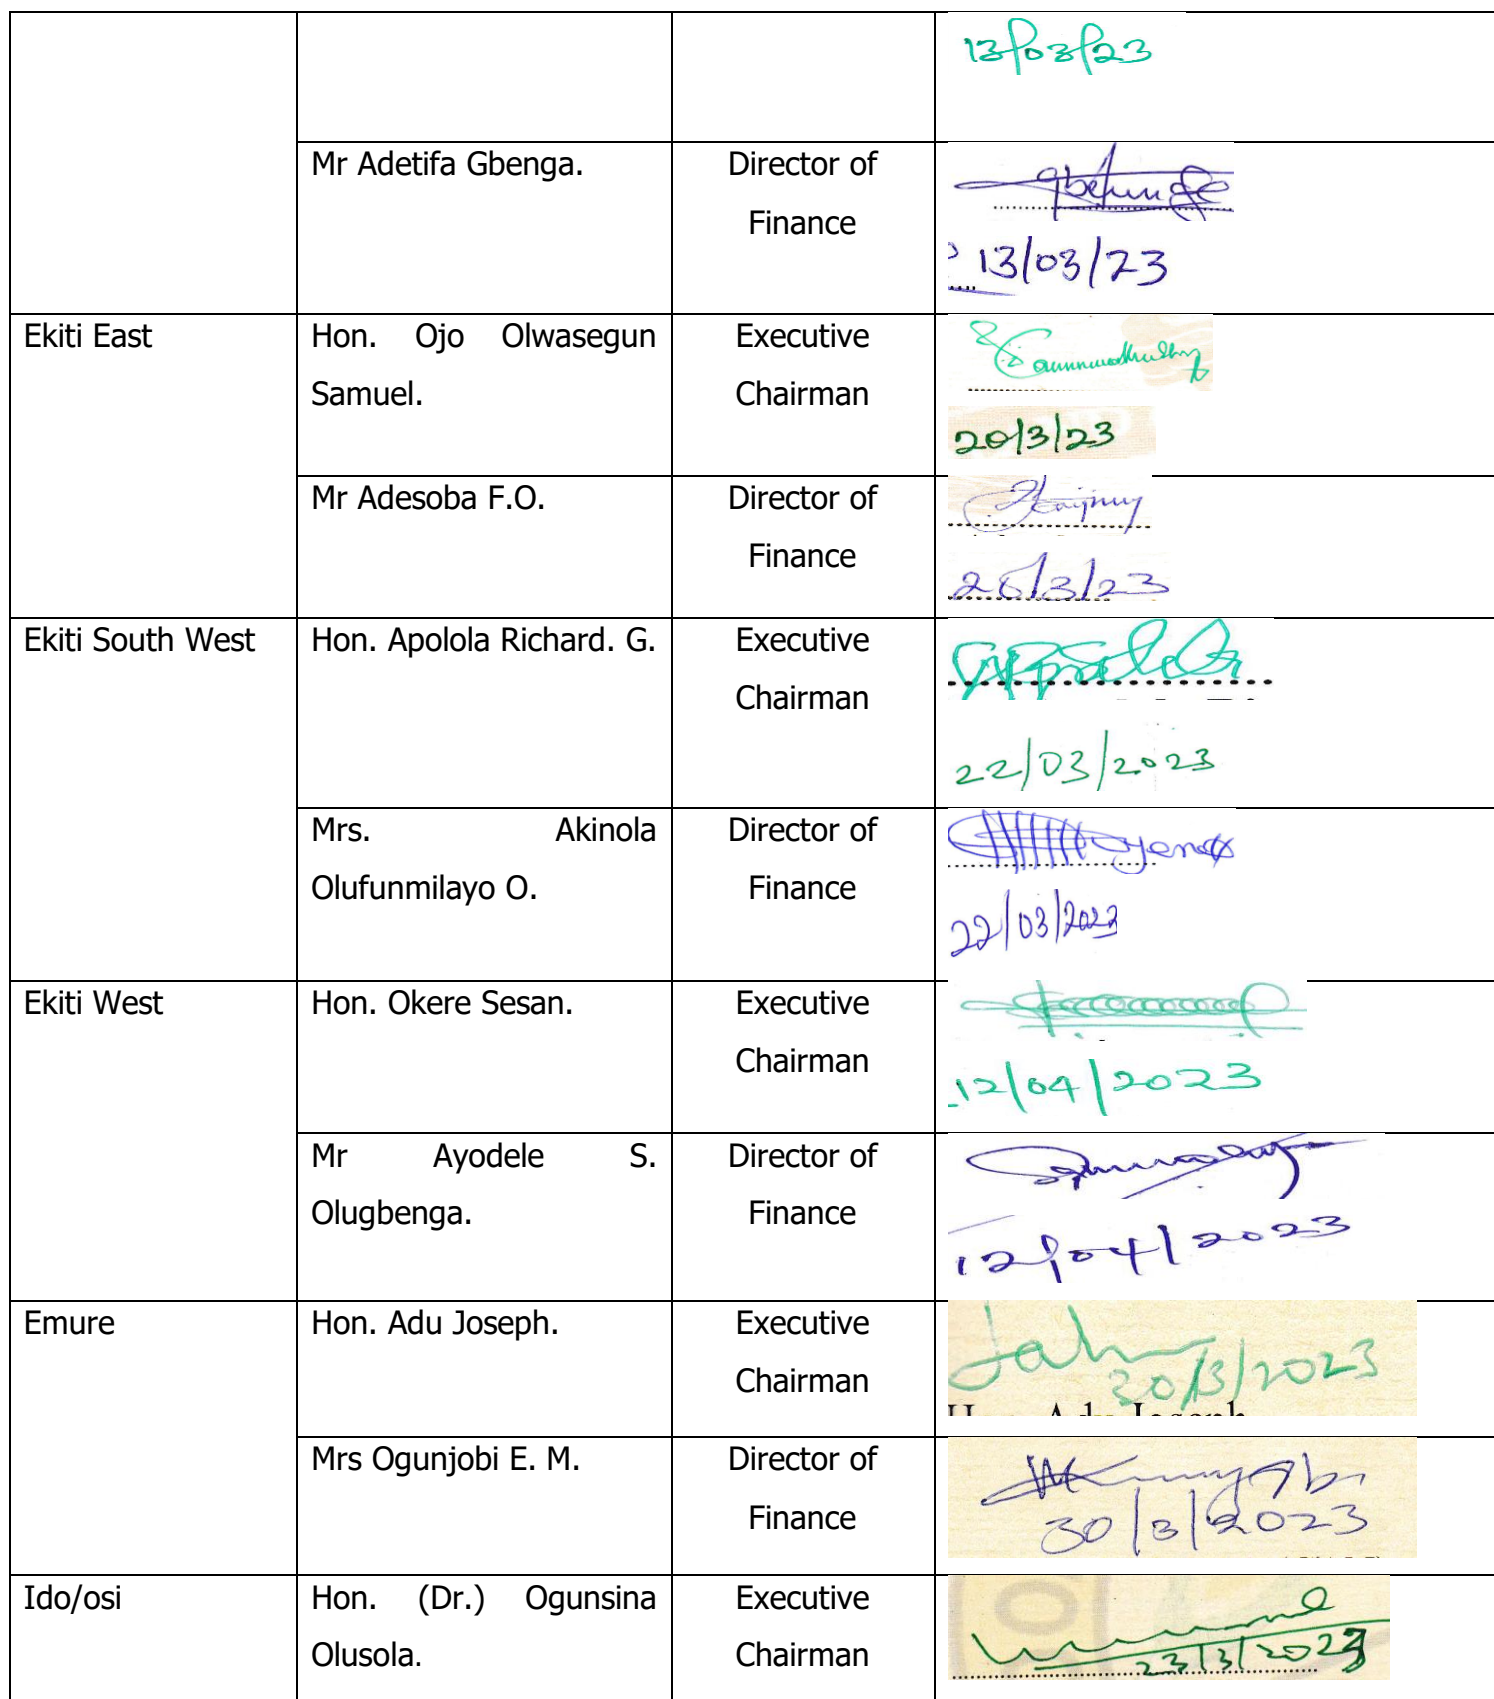 13/03/23
Mr Adetifa Gbenga.
Director of
Finance
13/03/23
Ekiti East
Hon. Ojo Olwasegun
Samuel.
Executive
Chairman
20/3/23
Mr Adesoba F.O.
Director of
Finance
20/3/23
Ekiti South West
Hon. Apolola Richard. G.
Executive
Chairman
22/03/2023
Mrs. Akinola
Olufunmilayo O.
Director of
Finance
22/03/2023
Ekiti West
Hon. Okere Sesan.
Executive
Chairman
12/04/2023
Mr Ayodele S.
Olugbenga.
Director of
Finance
12/04/2023
Emure
Hon. Adu Joseph.
Executive
Chairman
30/3/2023
Mrs Ogunjobi E. M.
Director of
Finance
30/3/2023
Ido/osi
Hon. (Dr.) Ogunsina
Olusola.
Executive
Chairman
23/3/2023